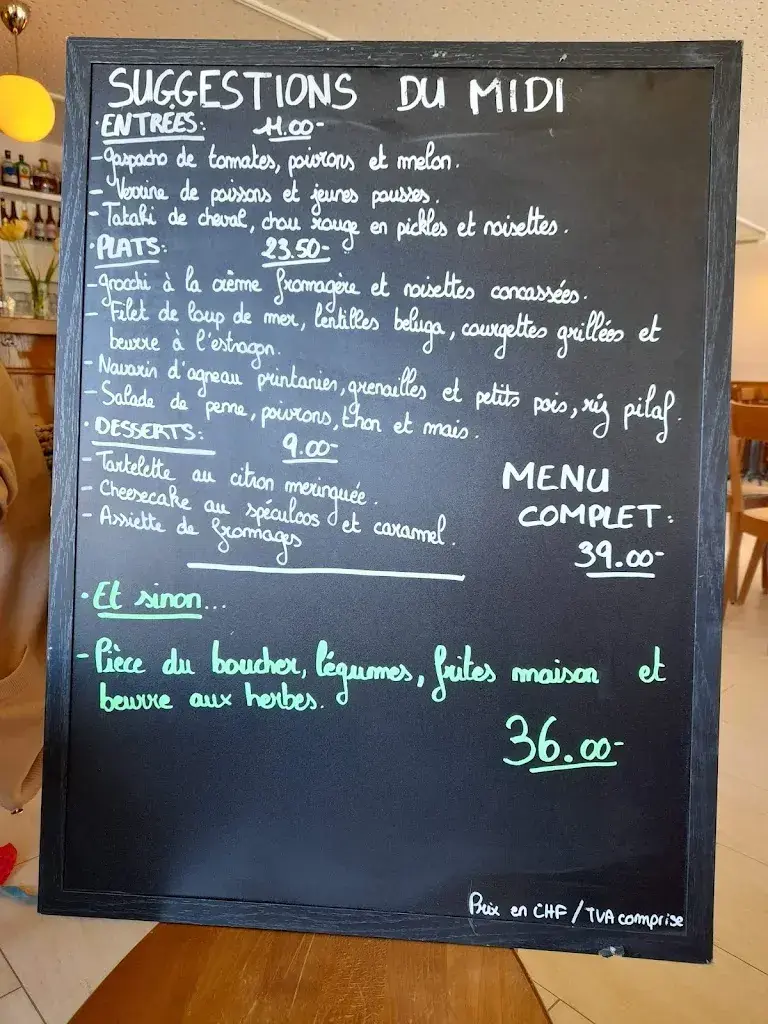 SUGGESTIONS DU MIDI
• ENTRÉES: 11.00-
- Gaspacho de tomates, poivrons et melon.
- Verrine de poissons et jeunes pousses.
- Tataki de cheval, chou rouge en pickles et noisettes.
• PLATS: 23.50-
- Gnocchi à la crème fromagère et noisettes concassées.
- Filet de loup de mer, lentilles beluga, courgettes grillées et
beurre à l'estragon.
- Navarin d'agneau printanier, grenailles et petits pois, riz pilaf.
- Salade de penne, poivrons, thon et maïs.
• DESSERTS: 9.00-
- Tartelette au citron meringuée.
- Cheesecake au spéculoos et caramel.
- Assiette de fromages
MENU
COMPLET:
39.00-
• Et sinon...
- Pièce du boucher, légumes, frites maison et
beurre aux herbes.
36.00-
Prix en CHF / TVA comprise